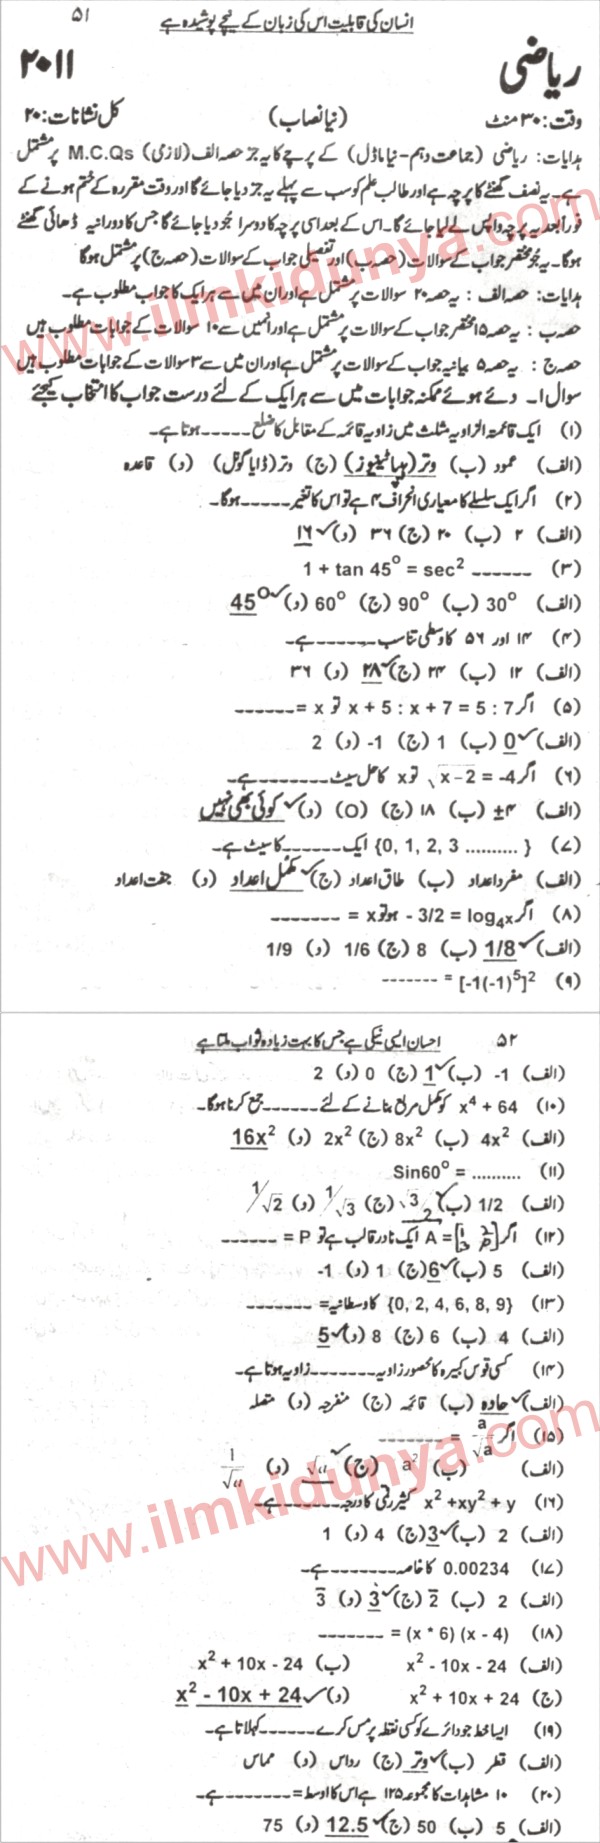 ۵۱
انسان کی قابلیت اس کی زبان کے نیچے پوشیدہ ہے
ریاضی ۲۰۱۱
وقت: ۳۰ منٹ (نیا نصاب) کل نشانات: ۲۰
ہدایات: ریاضی (جماعت دہم-نیا ماڈل) کے پرچے کا یہ جز حصہ الف (لازمی) M.C.Qs پر مشتمل
ہے۔ یہ نصف گھنٹے کا پرچہ ہے اور طالب علم کو سب سے پہلے یہ جز دیا جائے گا اور وقت مقررہ کے ختم ہونے کے
فوراً بعد یہ پرچہ واپس لے لیا جائے گا۔ اس کے بعد اسی پرچہ کا دوسرا جزو دیا جائے گا جس کا دورانیہ ڈھائی گھنٹے
ہوگا۔ یہ جزو مختصر جواب کے سوالات (حصہ ب) اور تفصیلی جواب کے سوالات (حصہ ج) پر مشتمل ہوگا
ہدایات: حصہ الف : یہ حصہ ۲۰ سوالات پر مشتمل ہے اور ان میں سے ہر ایک کا جواب مطلوب ہے۔
حصہ ب: یہ حصہ ۱۵ مختصر جواب کے سوالات پر مشتمل ہے اور انمیں سے ۱۰ سوالات کے جوابات مطلوب ہیں
حصہ ج : یہ حصہ ۵ بیانیہ جواب کے سوالات پر مشتمل ہے اور ان میں سے ۳ سوالات کے جوابات مطلوب ہیں
سوال۱۔ دئے ہوئے ممکنہ جوابات میں سے ہر ایک کے لئے درست جواب کا انتخاب کیجئے
(۱) ایک قائمۃ الزاویہ مثلث میں زاویہ قائمہ کے مقابل کا ضلع -----ہوتا ہے۔
(الف) عمود (ب) وتر (ہپاٹینیوز) (ج) وتر (ڈایا گوئل) (د) قاعدہ
(۲) اگر ایک سلسلے کا معیاری انحراف ۴ ہے تو اس کا تغیر -----ہوگا۔
(الف) ۲ (ب) ۲۰ (ج) ۳۶ (د) ✓۱۶
(۳) 1 + tan 45° = sec² ------
(الف) 30° (ب) 90° (ج) 60° (د) ✓45°
(۴) ۱۴ اور ۵۶ کا وسطی تناسب ------ہے۔
(الف) ۱۲ (ب) ۲۴ (ج) ✓۲۸ (د) ۳۶
(۵) اگر x + 5 : x + 7 = 5 : 7 تو x =------
(الف) ✓0 (ب) 1 (ج) -1 (د) 2
(۶) اگر √x-2 = -4 تو x کا حل سیٹ --------ہے۔
(الف) ±۴ (ب) ۱۸ (ج) (O) (د) ✓کوئی بھی نہیں
(۷) {0, 1, 2, 3 .......... } ایک ------کا سیٹ ہے۔
(الف) مفرد اعداد (ب) طاق اعداد (ج) ✓مکمل اعداد (د) جفت اعداد
(۸) اگر - 3/2 = log₄x ہو تو x = -------
(الف) ✓1/8 (ب) 8 (ج) 1/6 (د) 1/9
(۹) [-1(-1)⁵]² = -------
۵۲
احسان ایسی نیکی ہے جس کا بہت زیادہ ثواب ملتا ہے
(الف) -1 (ب) ✓1 (ج) 0 (د) 2
(۱۰) x⁴ + 64 کو مکمل مربع بنانے کے لئے ------جمع کرنا ہوگا۔
(الف) 4x² (ب) 8x² (ج) 2x² (د) 16x²
(۱۱) Sin60° = ..........
(الف) 1/2 (ب) ✓√3/2 (ج) 1/√3 (د) 1/√2
(۱۲) اگر A = [1 2 3 P] ایک نادر قالب ہے تو P = ------
(الف) 5 (ب) ✓6 (ج) 1 (د) -1
(۱۳) {0, 2, 4, 6, 8, 9} کا وسطانیہ= -------
(الف) 4 (ب) 6 (ج) 8 (د) ✓5
(۱۴) کسی قوس کبیرہ کا محصور زاویہ -------زاویہ ہوتا ہے۔
(الف) ✓حادہ (ب) قائمہ (ج) منفرجہ (د) متصلہ
(۱۵) اگر a/√a = --------
(الف) (ب) a² (ج) ✓√a (د) 1/√a
(۱۶) x² +xy² + y کثیر رقمی کا درجہ -------ہے۔
(الف) 2 (ب) ✓3 (ج) 4 (د) 1
(۱۷) 0.00234 کا خاصہ -------ہے۔
(الف) 2 (ب) 2̅ (ج) ✓3 (د) 3̅
(۱۸) (x * 6) (x - 4) = -------
(الف) x² - 10x - 24 (ب) x² + 10x - 24
(ج) x² + 10x + 24 (د) ✓x² - 10x + 24
(۱۹) ایسا خط جو دائرے کو کسی نقطہ پر مس کرے ------کہلاتا ہے۔
(الف) قطر (ب) ✓وتر (ج) رداس (د) مماس
(۲۰) ۱۰ مشاہدات کا مجموعہ ۱۲۵ ہے اس کا اوسط= -------ہے۔
(الف) 5 (ب) 50 (ج) ✓12.5 (د) 75
www.ilmkidunya.com
www.ilmkidunya.com